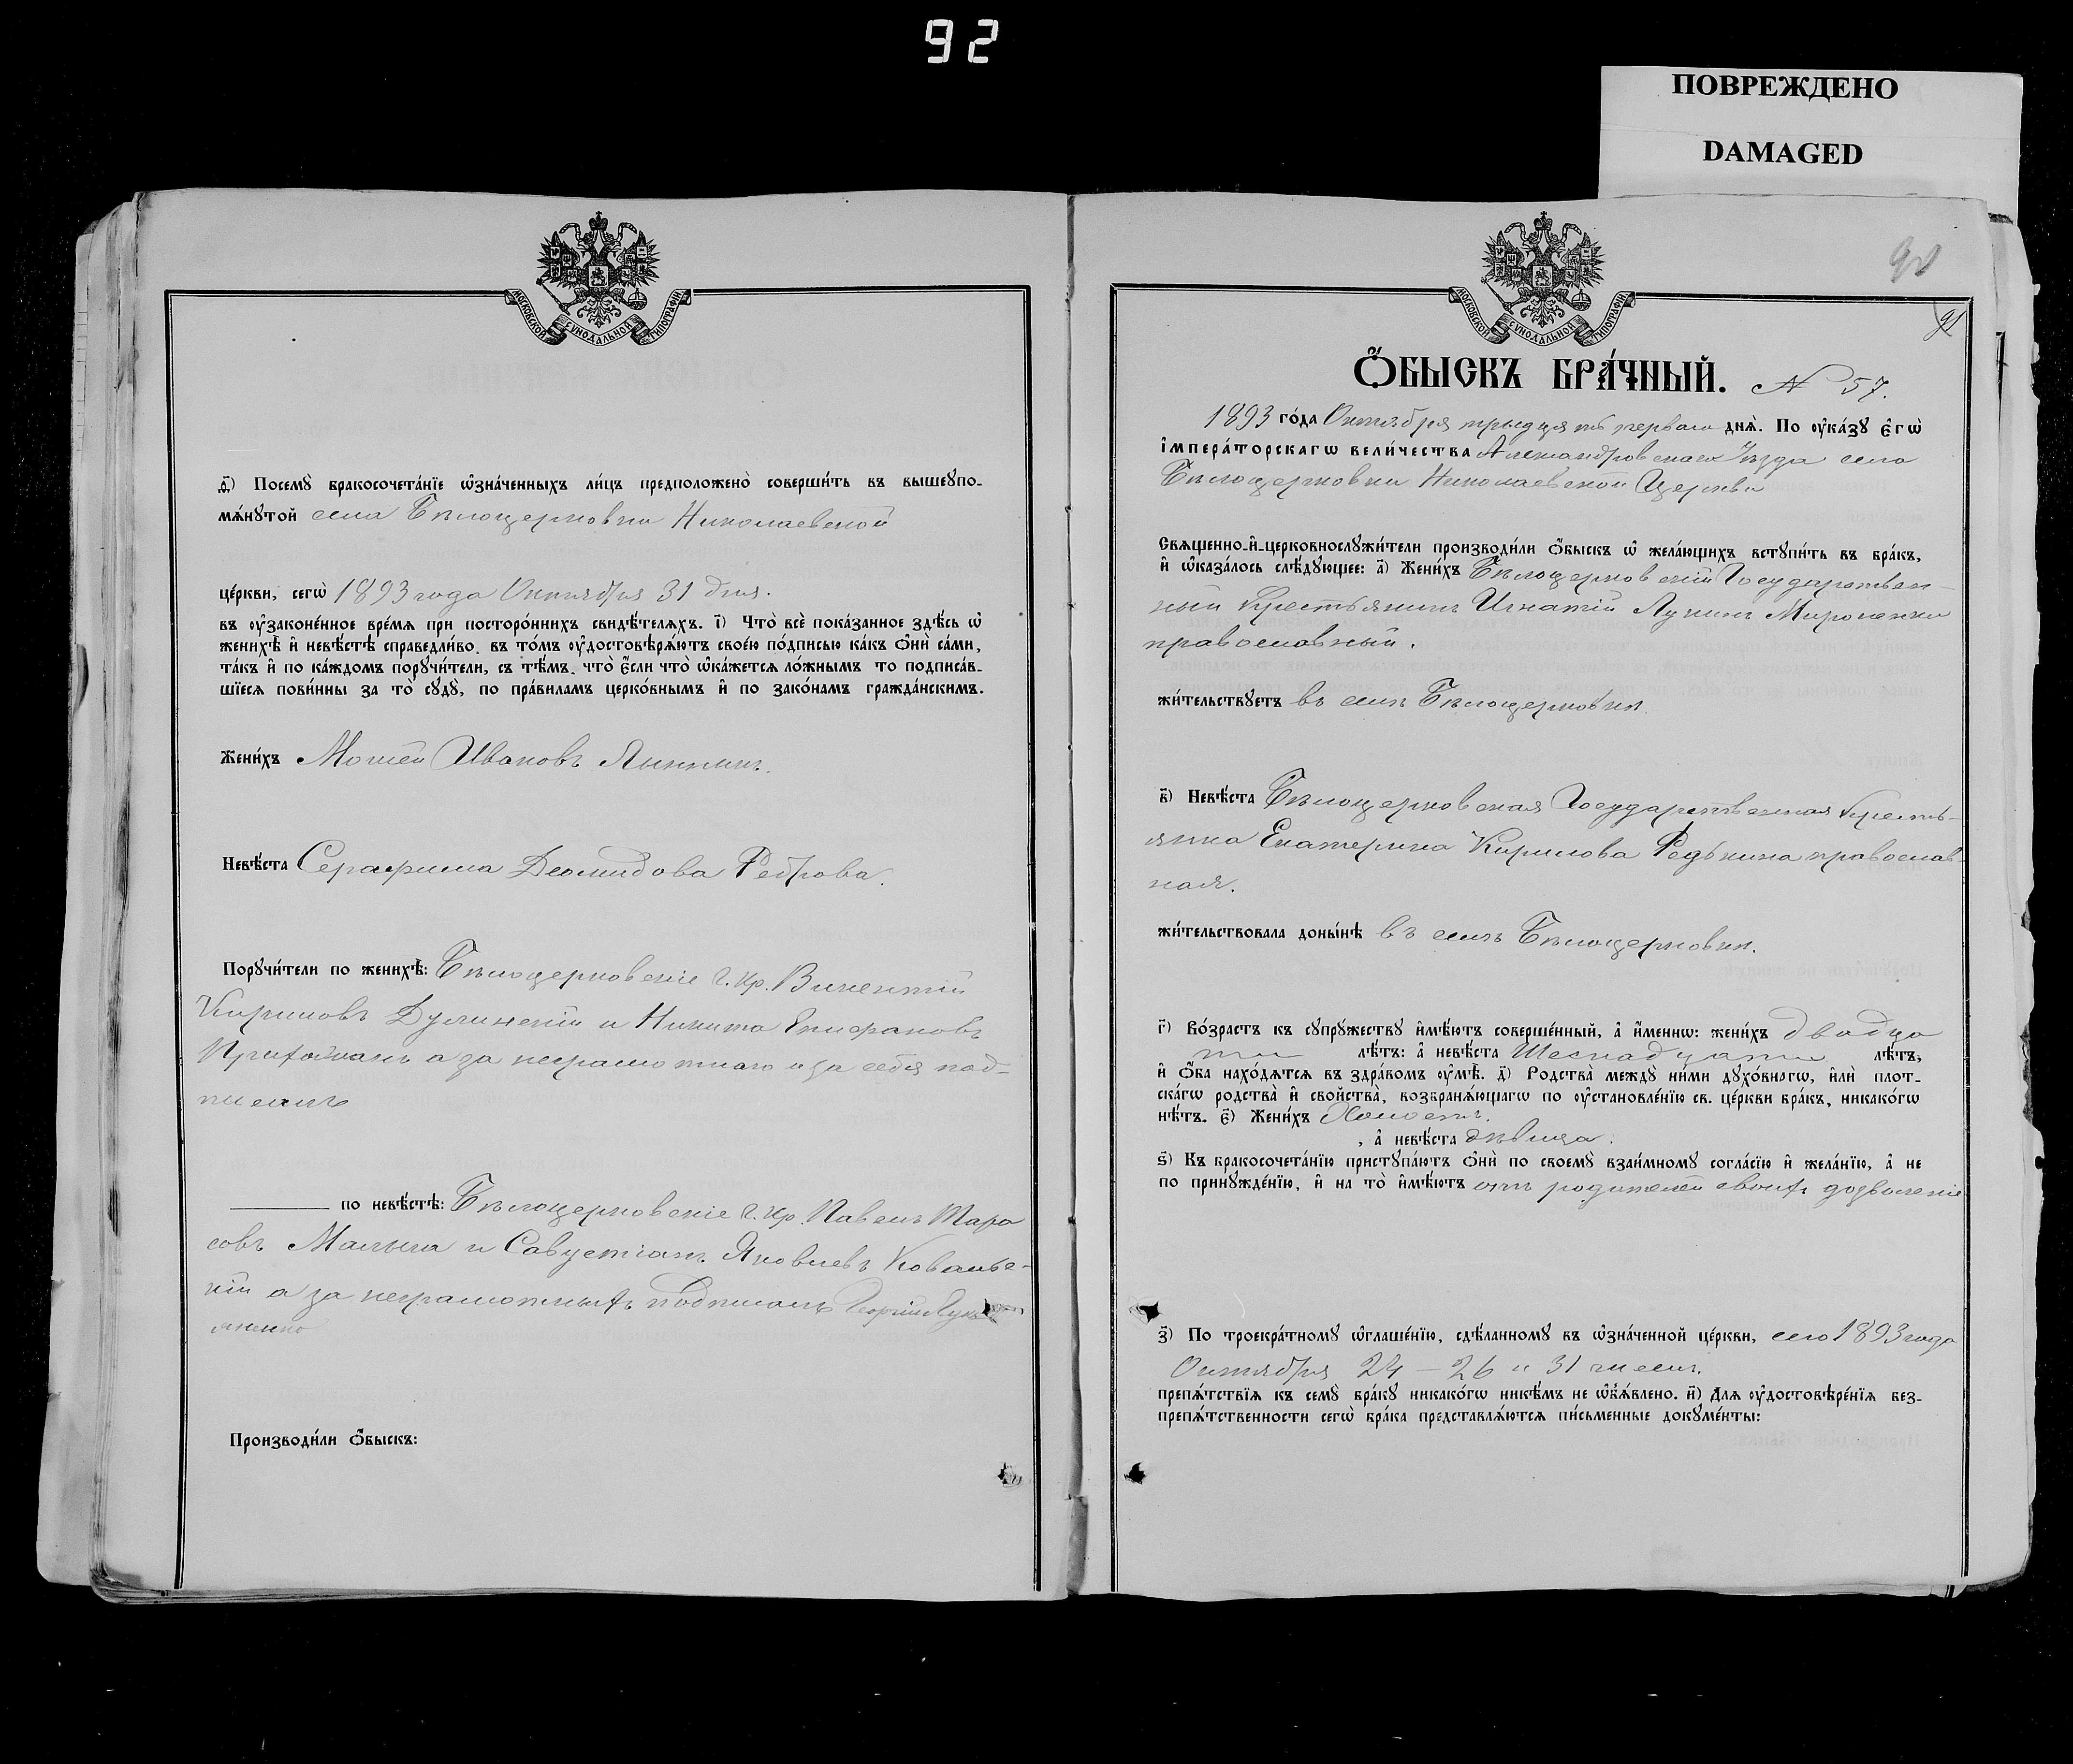 92
ПОВРЕЖДЕНО
DAMAGED
МОСКОВСКОЙ СѴНОДАЛЬНОЙ ТИПОГРАФІИ
д҃) Посемꙋ̀ бракосочета́нїе ѡ҆зна́ченныхъ ли́цъ предположено̀ соверши́ть въ вышеꙋпо-
мѧ́нꙋтой села Бѣлоцерковки Николаевской
це́ркви, сегѡ̀ 1893 года Октября 31 дня.
въ ᲂу҆зако́ненное вре́мѧ при посторо́ннихъ свидѣ́телѧхъ. і҃) Что̀ всѐ пока́занное здѣ́сь ѡ҆
женихѣ̀ и҆ невѣ́стѣ справедли́во, въ то́мъ ᲂу҆достовѣрѧ́ютъ свое́ю по́дписью ка́къ ѻ҆нѝ са́ми,
та́къ и҆ по ка́ждомъ порꙋчи́тели, съ тѣ́мъ, что̀ є҆́сли что̀ ѡ҆ка́жетсѧ ло́жнымъ то подписа́в-
шїесѧ пови́нны за то̀ сꙋдꙋ̀, по пра́виламъ церко́внымъ и҆ по зако́намъ гражда́нскимъ.
Жени́хъ Мосей Ивановъ Яни
Невѣ́ста Серафима Деомидова Реброва.
Порꙋчи́тели по женихѣ̀: Бѣлоцерковскіе г. кр. Викентій
Кириловъ Дулинскій и Никита Епифановъ
а за неграмотнаго и за себя под-
писалъ
по невѣ́стѣ: Бѣлоцерковскіе г. кр. Павелъ Тара
совъ Малыга и Савустіанъ Яковлевъ Ковальс-
кій а за неграмотныхъ подписалъ Георгій Лукь
яненко
Производи́ли ѻ҆́быскъ:
90
91
МОСКОВСКОЙ СѴНОДАЛЬНОЙ ТИПОГРАФІИ
Ѻ҆́БЫСКЪ БРА́ЧНЫЙ. № 57.
1893 го́да Октября тридцять перваго днѧ̀. По ᲂу҆ка́зꙋ є҆гѡ̀
і҆мпера́торскагѡ вели́чества Александровскаго Уѣзда села
Бѣлоцерковки Николаевской Церкви
Свѧщенно-и҆-церковнослꙋжи́тели производи́ли ѻ҆́быскъ ѡ҆ жела́ющихъ встꙋпи́ть въ бра́къ,
и҆ ѡ҆каза́лось слѣ́дꙋющее: а҃) Жени́хъ Бѣлоцерковскій Государствен-
ный Крестьянинъ Игнатій Лукинъ Мироненко
православный.
жи́тельствꙋетъ въ селѣ Бѣлоцерковкѣ.
в҃) Невѣ́ста Бѣлоцерковская Государственная Кресть-
янка Екатерина Кирилова Редькина православ-
ная.
жи́тельствовала доны́нѣ въ селѣ Бѣлоцерковкѣ.
г҃) Во́зрастъ къ сꙋпрꙋ́жествꙋ и҆мѣ́ютъ соверше́нный, а҆ и҆́меннѡ: жени́хъ двадца
ти лѣ́тъ: а҆ невѣ́ста Шеснадцати лѣ́тъ,
и҆ ѻ҆́ба нахо́дѧтсѧ въ здра́вомъ ᲂу҆мѣ̀. д҃) Родства̀ междꙋ̀ ни́ми дꙋхо́внагѡ, и҆лѝ плот-
ска́гѡ родства̀ и҆ свойства̀, возбранѧ́ющагѡ по ᲂу҆становле́нїю св. це́ркви бра́къ, никако́гѡ
нѣ́тъ. є҃) Жени́хъ Холостъ.
, а҆ невѣ́ста дѣвица.
ѕ҃) Къ бракосочета́нїю пристꙋпа́ютъ ѻ҆нѝ по своемꙋ̀ взаи́мномꙋ согла́сїю и҆ жела́нїю, а҆ не
по принꙋжде́нїю, и҆ на то̀ и҆мѣ́ютъ отъ родителей своихъ дозволеніе
з҃) По троекра́тномꙋ ѡ҆глаше́нїю, сдѣ́ланномꙋ въ ѡ҆зна́ченной це́ркви, сего 1893 года
Октября 24 – 26 и 31 чиселъ.
препѧ́тствїѧ къ семꙋ̀ бра́кꙋ никако́гѡ никѣ́мъ не ѡ҆б̾ѧ́влено. и҃) Для ᲂу҆достовѣре́нїѧ без-
препѧ́тственности сегѡ̀ бра́ка представлѧ́ютсѧ пи́сьменные докꙋме́нты: